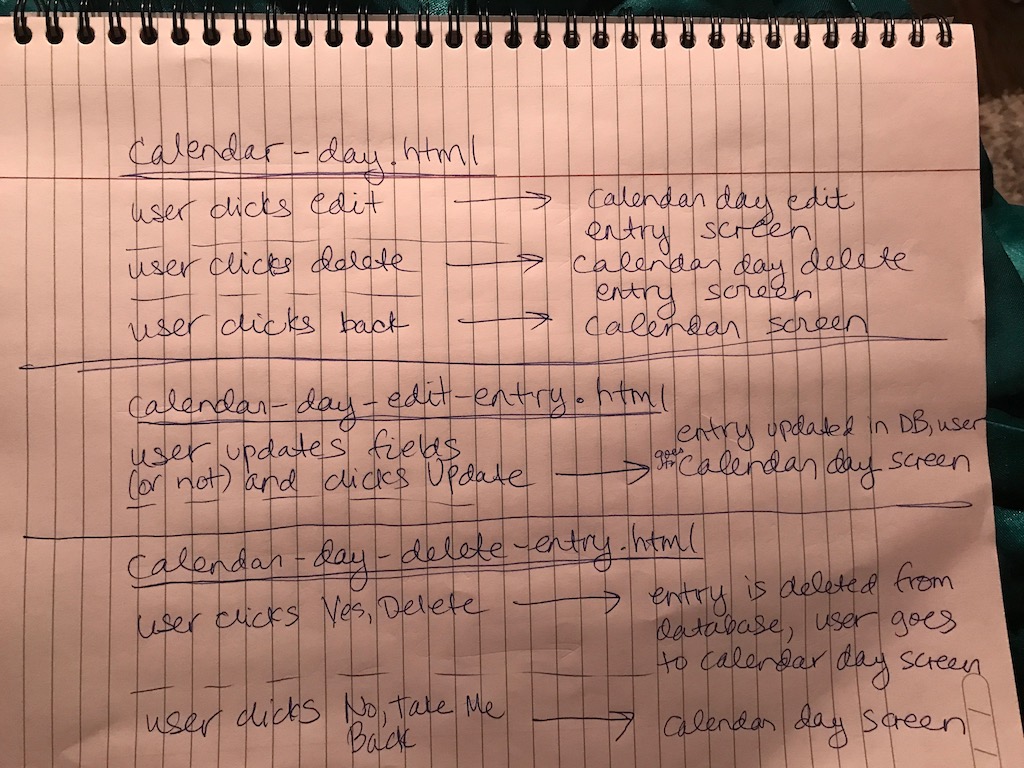 calendar-day.html
user clicks edit → calendar day edit
entry screen
user clicks delete → calendar day delete
entry screen
user clicks back → calendar screen
calendar-day-edit-entry.html
user updates fields
entry updated in DB, user
(or not) and clicks Update → goes to calendar day screen
calendar-day-delete-entry.html
user clicks Yes, Delete → entry is deleted from
database, user goes
to calendar day screen
user clicks No, Take Me
Back → calendar day screen